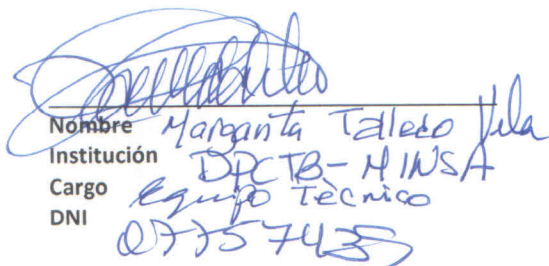 Nombre Margarita Talledo Vela
Institución DPCTB - MINSA
Cargo Equipo Tècnico
DNI 07757435